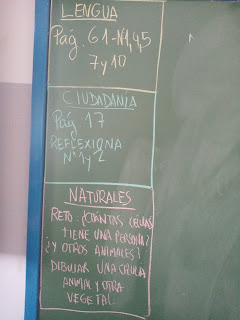 LENGUA
Pág. 61-Nº1,4,5
7 y 10
CIUDADANÍA
Pág 17
REFLEXIONA
Nº 1 y 2
NATURALES
RETO: ¿CUÁNTAS CÉLULAS
TIENE UNA PERSONA?
¿Y OTROS ANIMALES?
DIBUJAR UNA CÉLULA
ANIMAL Y OTRA
VEGETAL